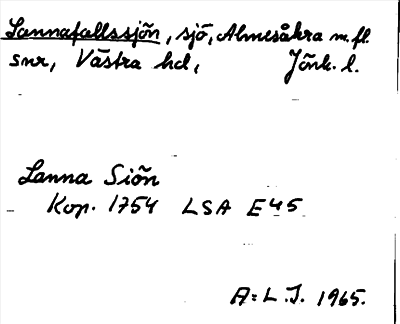 Lannafallssjön, sjö, Almesåkra m.fl.
snr, Västra hd, Jönk. l.
Lanna Siön
Kop. 1754 LSA E45
A: L. J. 1965.